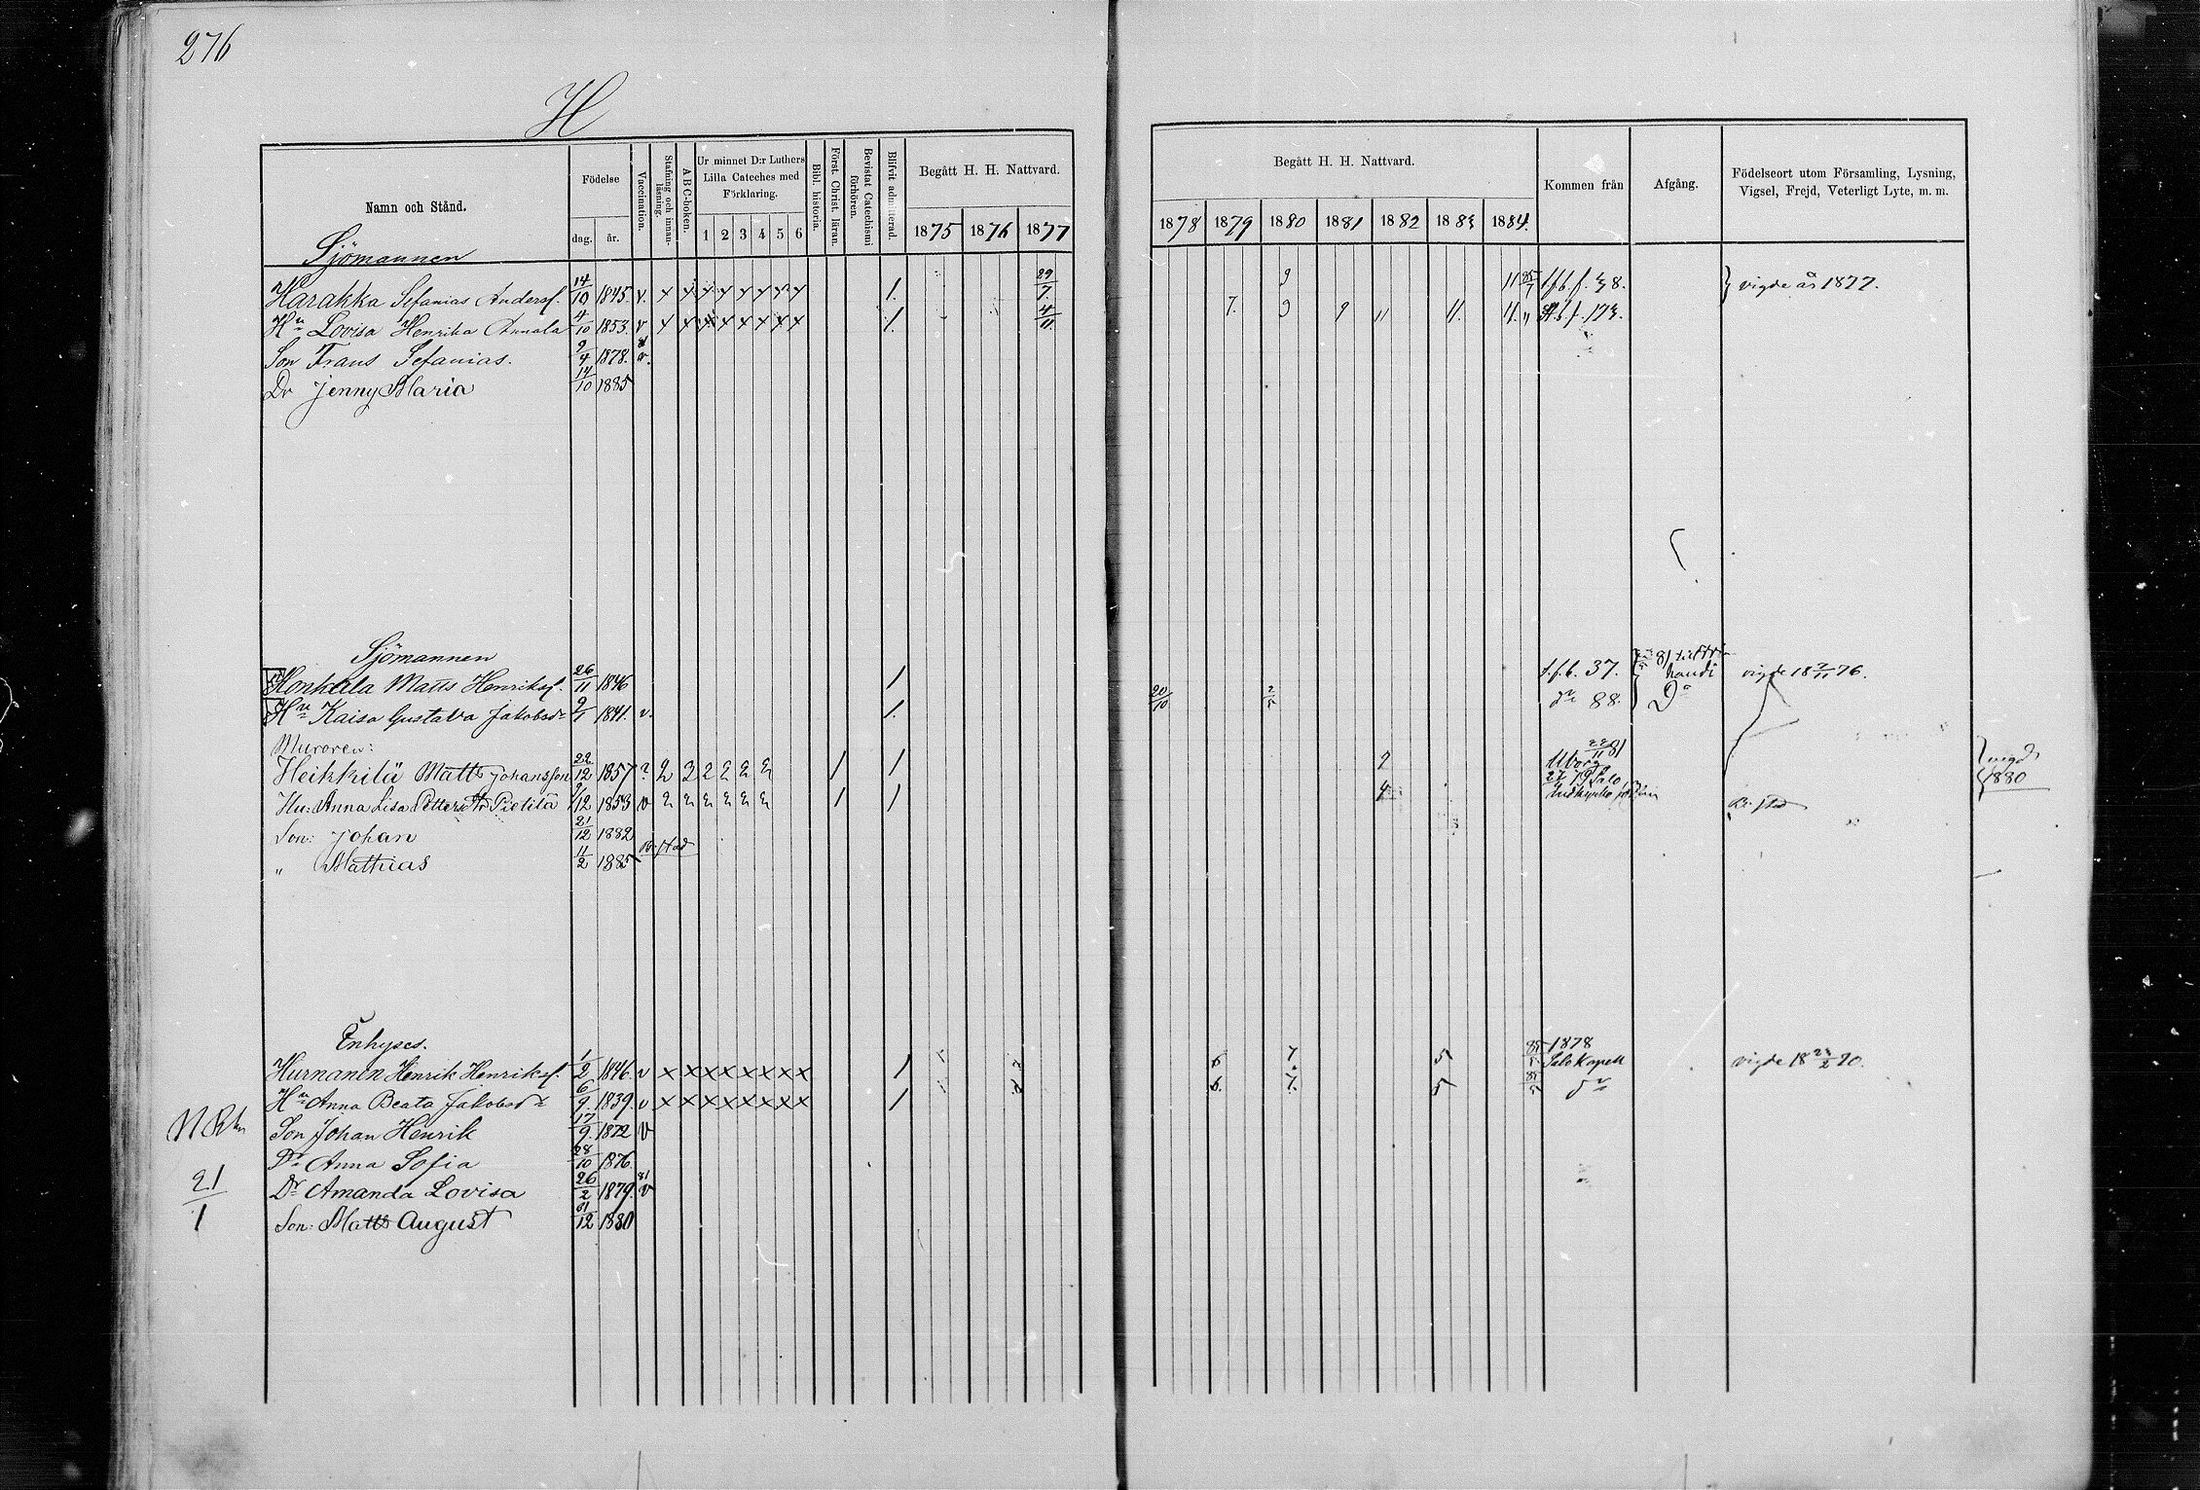 276
H
Namn och Stånd.
Födelse
dag. år.
Vaccination.
Stafning och innanläsning.
A B C-boken.
Ur minnet D:r Luthers Lilla Cateches med Förklaring.
1 2 3 4 5 6
Bibl. historia.
Först. Christ. läran.
Bevistat Catechismi förhören.
Blifvit admitterad.
Begått H. H. Nattvard.
1875 1876 1877
Begått H. H. Nattvard.
1878 1879 1880 1881 1882 1883 1884.
Kommen från
Afgång.
Födelseort utom Församling, Lysning, Vigsel, Frejd, Veterligt Lyte, m. m.
Sjömannen
Harakka Sefanias Andersf. 14/10 1845 v. x x x x x x x x 1. 29/7. 9 11 85/7 vigde år 1877.
Hu Lovisa Henrika Annala 4/10 1853. v x x x x x x x x 1. 4/11. 7. 9 9 11 11. 11. "
Son Frans Sefanias. 9/4 1878. v.
Dr Jenny Maria 14/10 1885
Sjömannen
Honkala Matts Henriksf. 26/11 1846 1 t.f.b. 37. 81 vigde 18 76.
Hu Kaisa Gustava Jakobsdr 9/1 1841. v. 1. 20/10 2/5 dr 88. Do
Muraren:
Heikkilä Matts Johansson 22/12 1857 ? 2 3 2 2 2 2 1 1 2 81
Hu: Anna Lisa Pettersdr Pietilä 9/12 1853 v 1 1 4 79 Salo B. stad 1880
Son: Johan 21/12 1882
" Mathias 11/2 1885 B. stad
Enhyses.
Hurnanen Henrik Henriksf. 1/2 1846. v x x x x x x x x 1 6 7 5 85/5 1878 Salo Kapell vigde 18 23/2 70.
Hu Anna Beata Jakobsdr 6/9. 1839. v x x x x x x x x 1 6. 7. 5 85/5 dr
Son Johan Henrik 17/9. 1872 v
Dr Anna Sofia 28/10 1876.
21/1
Dr Amanda Lovisa 26/2 1879. 81 v
Son: Matts August 31/12 1880